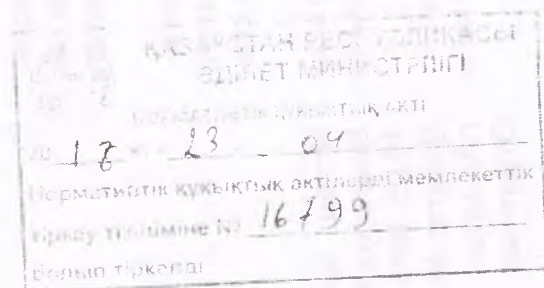 ҚАЗАҚСТАН РЕСПУБЛИКАСЫ
ӘДІЛЕТ МИНИСТРЛІГІ
құқықтық акті
23 04
Нормативтік құқықтық актілерді мемлекеттік
тіркеу тізіліміне №
болып тіркелді